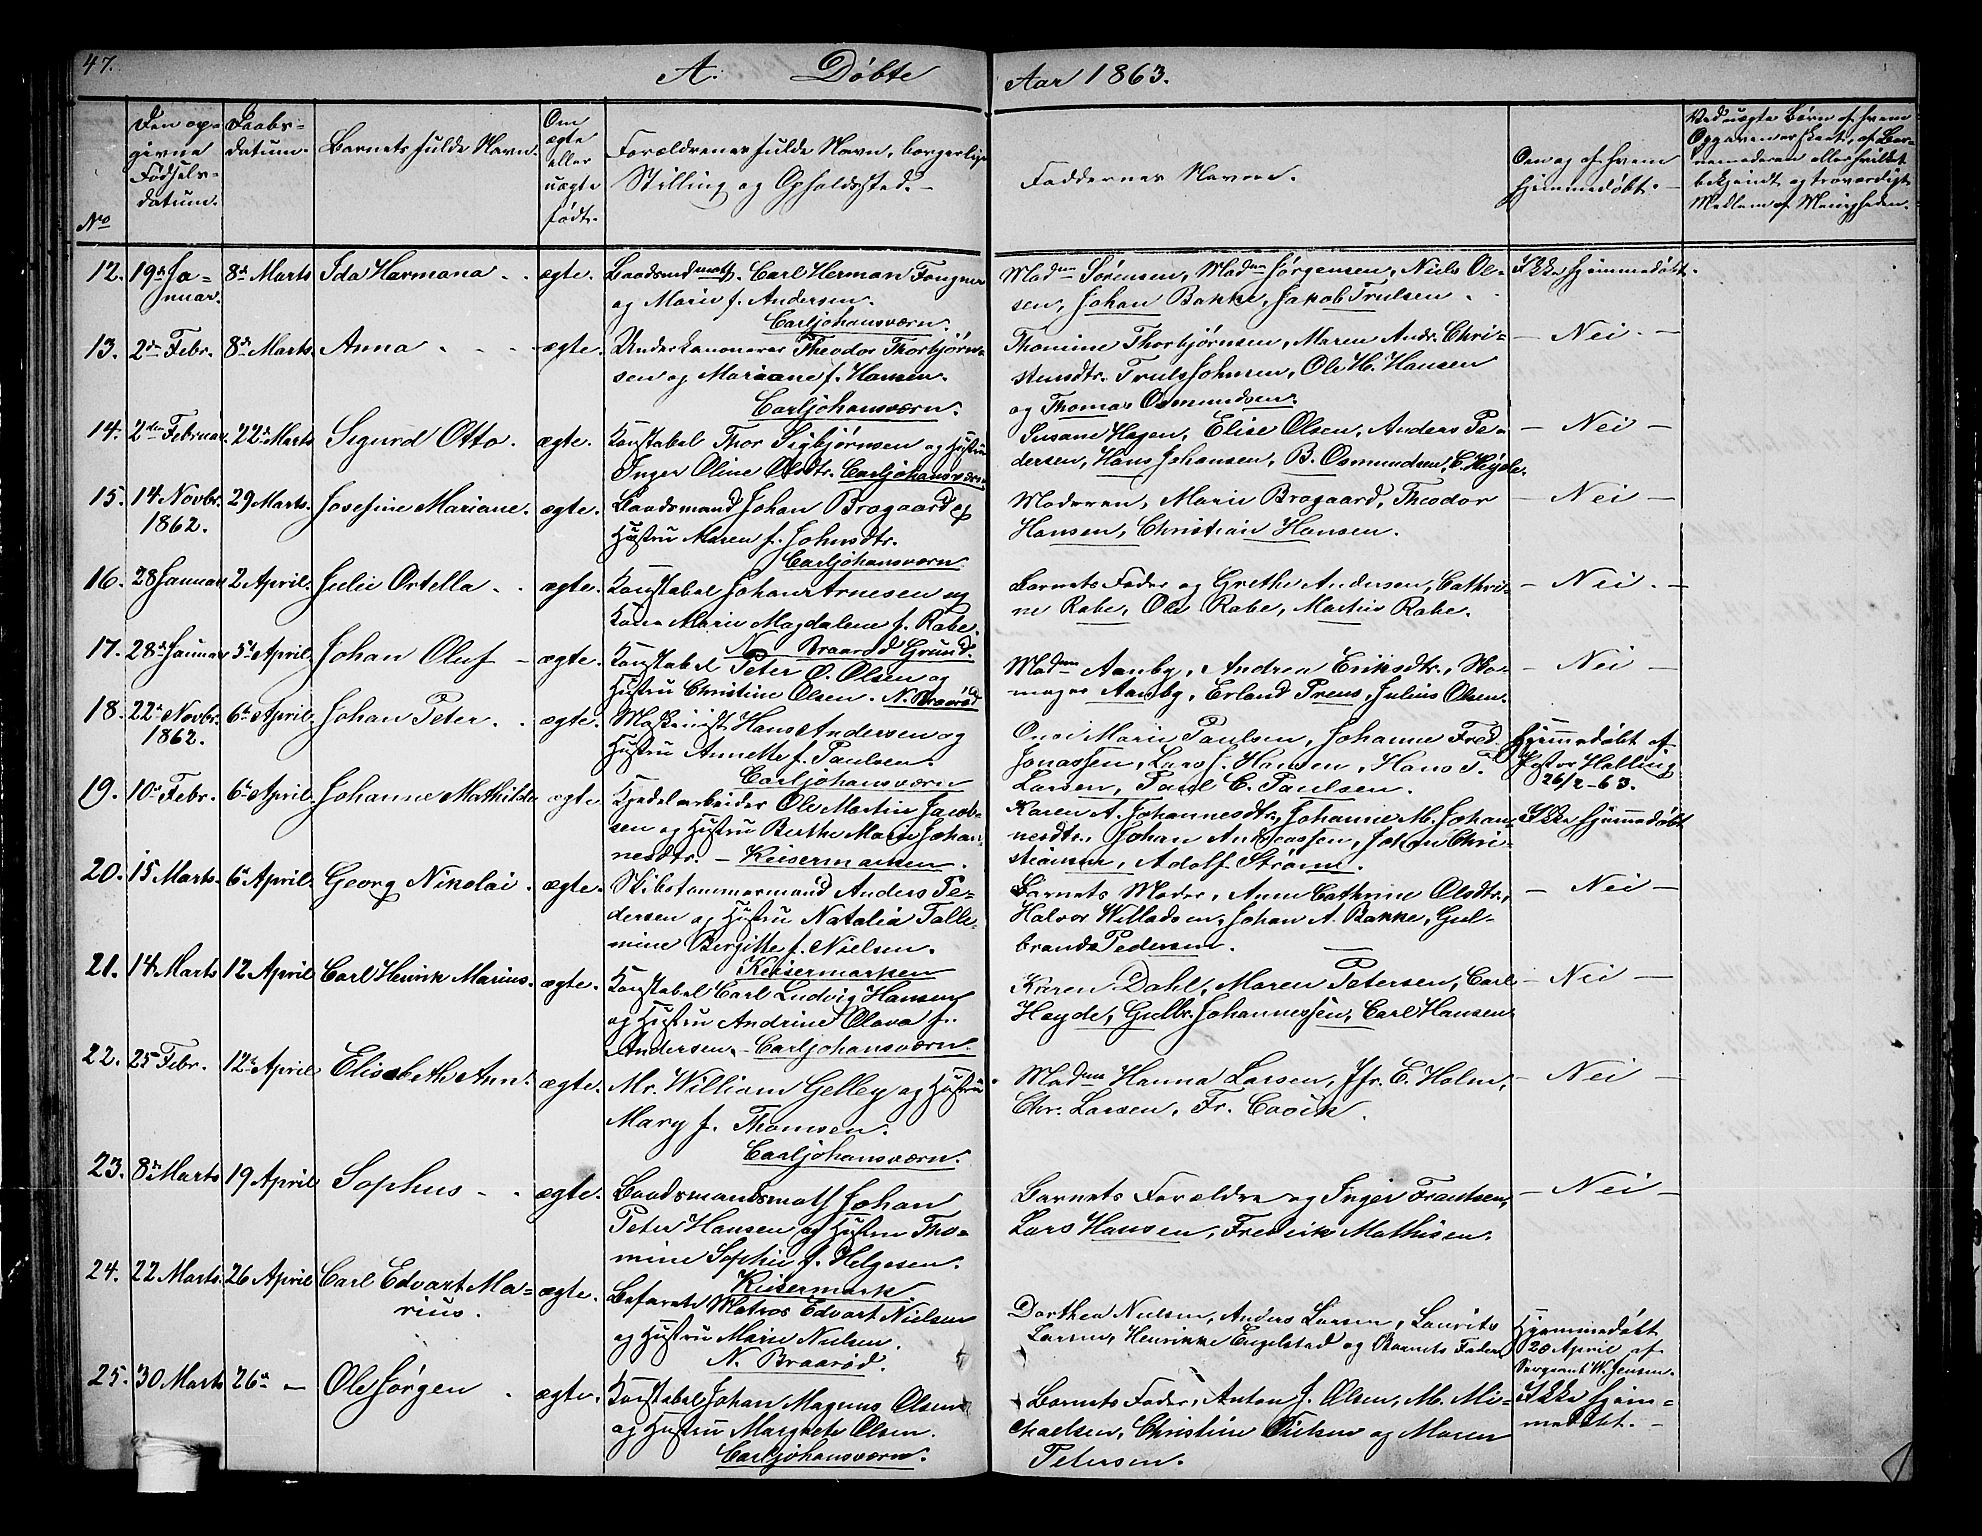 47.
A. Døbte
Aar 1863.
No
Den op-
givne
Fødsels-
datum.
Daabs-
datum.
Barnets fulde Navn.
Om
ægte
eller
uægte
født.
Forældrenes fulde Navn, borgerlige
Stilling og Opholdssted.
Faddernes Navne.
Om og af hvem
hjemmedøbt.
Ved uægte Børn af hvem
Opgaven er skeet, af Bar-
nemoderen eller hvilket
bekjendt og troværdigt
Medlem af Menigheden.
12. 19de Ja-
nuar. 8de Marts Ida Harmana ægte. Baadsmdmath. Carl Herman Fongner
og Marie f. Andersen.
Carljohansværn.
Madm Sørensen, Madm Jørgensen, Niels Ol-
sen, Johan Bakke, Jakob Trulsen.
Ikke hjemmedøbt.
13. 2den Febr. 8de Marts. Anna ægte. Underkanoneer Theodor Thorbjørn-
sen og Mariane f. Hansen.
Carljohansværn.
Thomine Thorbjørnsen, Maren Andr. Chri-
stensdtr. Truls Johnsen, Ole H. Hansen
og Thomas Osmundsen.
– Nei. –
14. 2den Februar. 22de Marts Sigurd Otto. ægte. Konstabel Thor Sigbjørnsen og Hustru
Inger Oline Olsdtr. Carljohansværn
Susane Hagen, Elise Olsen, Anders Pe-
dersen, Hans Johansen, B. Osmundsen, C. Heyde.
– Nei –
15. 14 Novbr.
1862. 29 Marts. Josefine Mariane. ægte. Baadsmand Johan Brogaard og
Hustru Maren f. Johnsdtr.
Carljohansværn.
Moderen, Marie Brogaard, Theodor
Hansen, Christian Hansen.
– Nei –
16. 28 Januar 2 April. Julie Ortella ægte. Konstabel Johan Arnesen og
Kone Marie Magdalene f. Rabe.
N. Braarød Grund.
Barnets Fader og Grethe Andersen, Cathri-
ne Rabe, Ole Rabe, Martin Rabe.
– Nei. –
17. 28de Januar 5te April. Johan Oluf – ægte. Konstabel Peter O. Olsen og
Hustru Christine Olsen. N. Braarød
Madm Aanby, Andrea Eriksdtr., Sko-
mager Aanby, Erland Preus, Julius Olsen.
– Nei –
18. 22de Novbr.
1862. 6te April. Johan Peter. ægte. Maskinist Hans Andersen og
Hustru Annette f. Paulsen.
Carljohansværn
Marie Paulsen, Johanne Fred.
Jonassen, Lars J. Hansen, Hans F.
Larsen, Paul C. Paulsen.
Hjemmedøbt af
Pastor Halling
26/2-63.
19. 10de Febr. 6te April. Johanne Mathilde ægte. Kjedelarbeider Ole Martin Jacob-
sen og Hustru Berthe Marie Johan-
nesdtr. – Keisermarken.
Karen A. Johannesdtr., Johanne M. Johan-
nesdtr., Johan Andreassen, Johan Chri-
stiansen, Adolf Strøm.
Ikke hjemmedøbt
20. 15 Marts. 6te April. Georg Nikolai. ægte. Skibstømmermand Anders Pe-
dersen og Hustru Natalia Talle-
mine Bergitte f. Nielsen.
Keisermarken
Barnets Moder, Anne Cathrine Olsdtr.,
Halvor Willadsen, Johan A. Bakke, Gul-
brands Pedersen.
– Nei –
21. 14 Marts 12 April Carl Henrik Marius. ægte. Konstabel Carl Ludvig Hansen
og Hustru Andrine Olava f.
Andersen. – Carljohansværn.
Karen Dahl, Maren Petersen, Carl
Heyde, Gulbr. Johannessen, Carl Hansen.
– Nei –
22. 25 Febr. 12te April Elisabeth Ann. ægte. Mr. William Gelley og Hustru
Mary f. Thomsen.
Carljohansværn.
Madm Hanna Larsen, Jfr. E. Holm,
Chr. Larsen, Fr.
– Nei –
23. 8de Marts 19 April Sophus ægte. Baadsmandsmath Johan
Peter Hansen og Hustru Tho-
mine Sophie f. Helgesen.
Keisermark.
Barnets Forældre og Inger Frantsen,
Lars Hansen, Frederik Mathisen.
– Nei –
24. 22 Marts. 26 April Carl Edvart Ma-
rius. ægte. Befarene Matros Edvart Nielsen
og Hustru Marie Nielsen.
N. Braarød.
Dorthea Nielsen, Anders Larsen, Laurits
Larsen, Henrikke Engelstad og Barnets Fader
Hjemmedøbt
20 April af
Sergeant W. Jensen.
25. 30 Marts 26de – Ole Jørgen ægte. Konstabel Johan Magnus Olsen
og Hustru Margrete Olsen.
Carljohansværn.
Barnets Fader, Anton J. Olsen, M. Mi-
chaelsen, Christine og Maren
Petersen.
Ikke hjem-
medøbt.